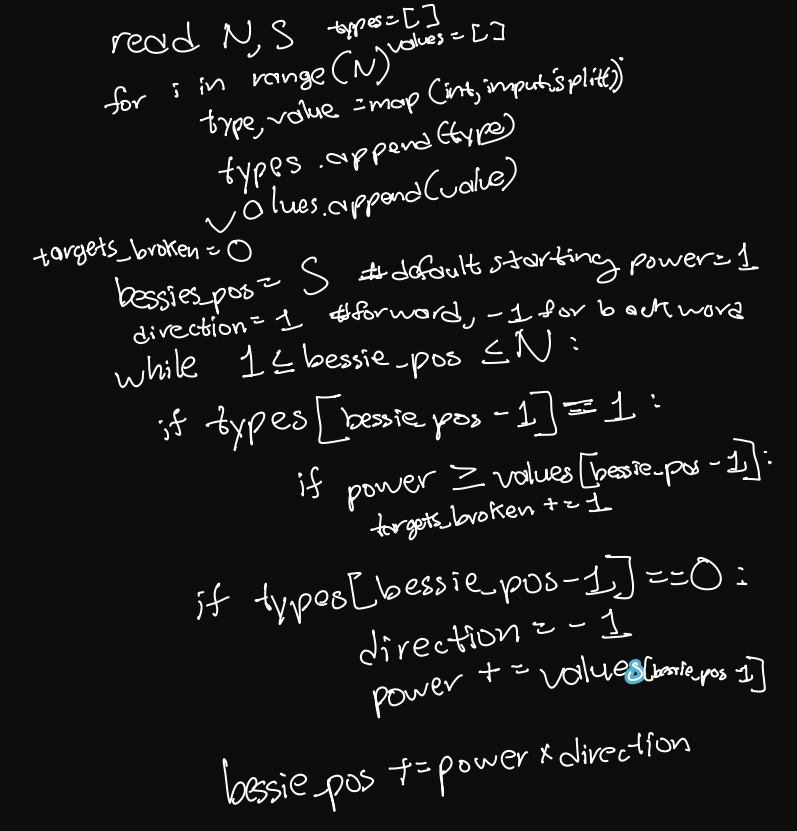 read N, S types=[]
values=[]
for i in range(N)
type, value =map(int, input.split())
types.append(type)
values.append(value)
targets_broken=0
bessies_pos= S #default starting power=1
direction=1 #forward, -1 for backward
while 1≤bessie_pos ≤N:
if types[bessie_pos -1]==1:
if power ≥values[bessie_pos -1]:
targets_broken +=1
if types[bessie_pos-1]==0:
direction=-1
power += values[bessie_pos 1]
bessie_pos +=power x direction